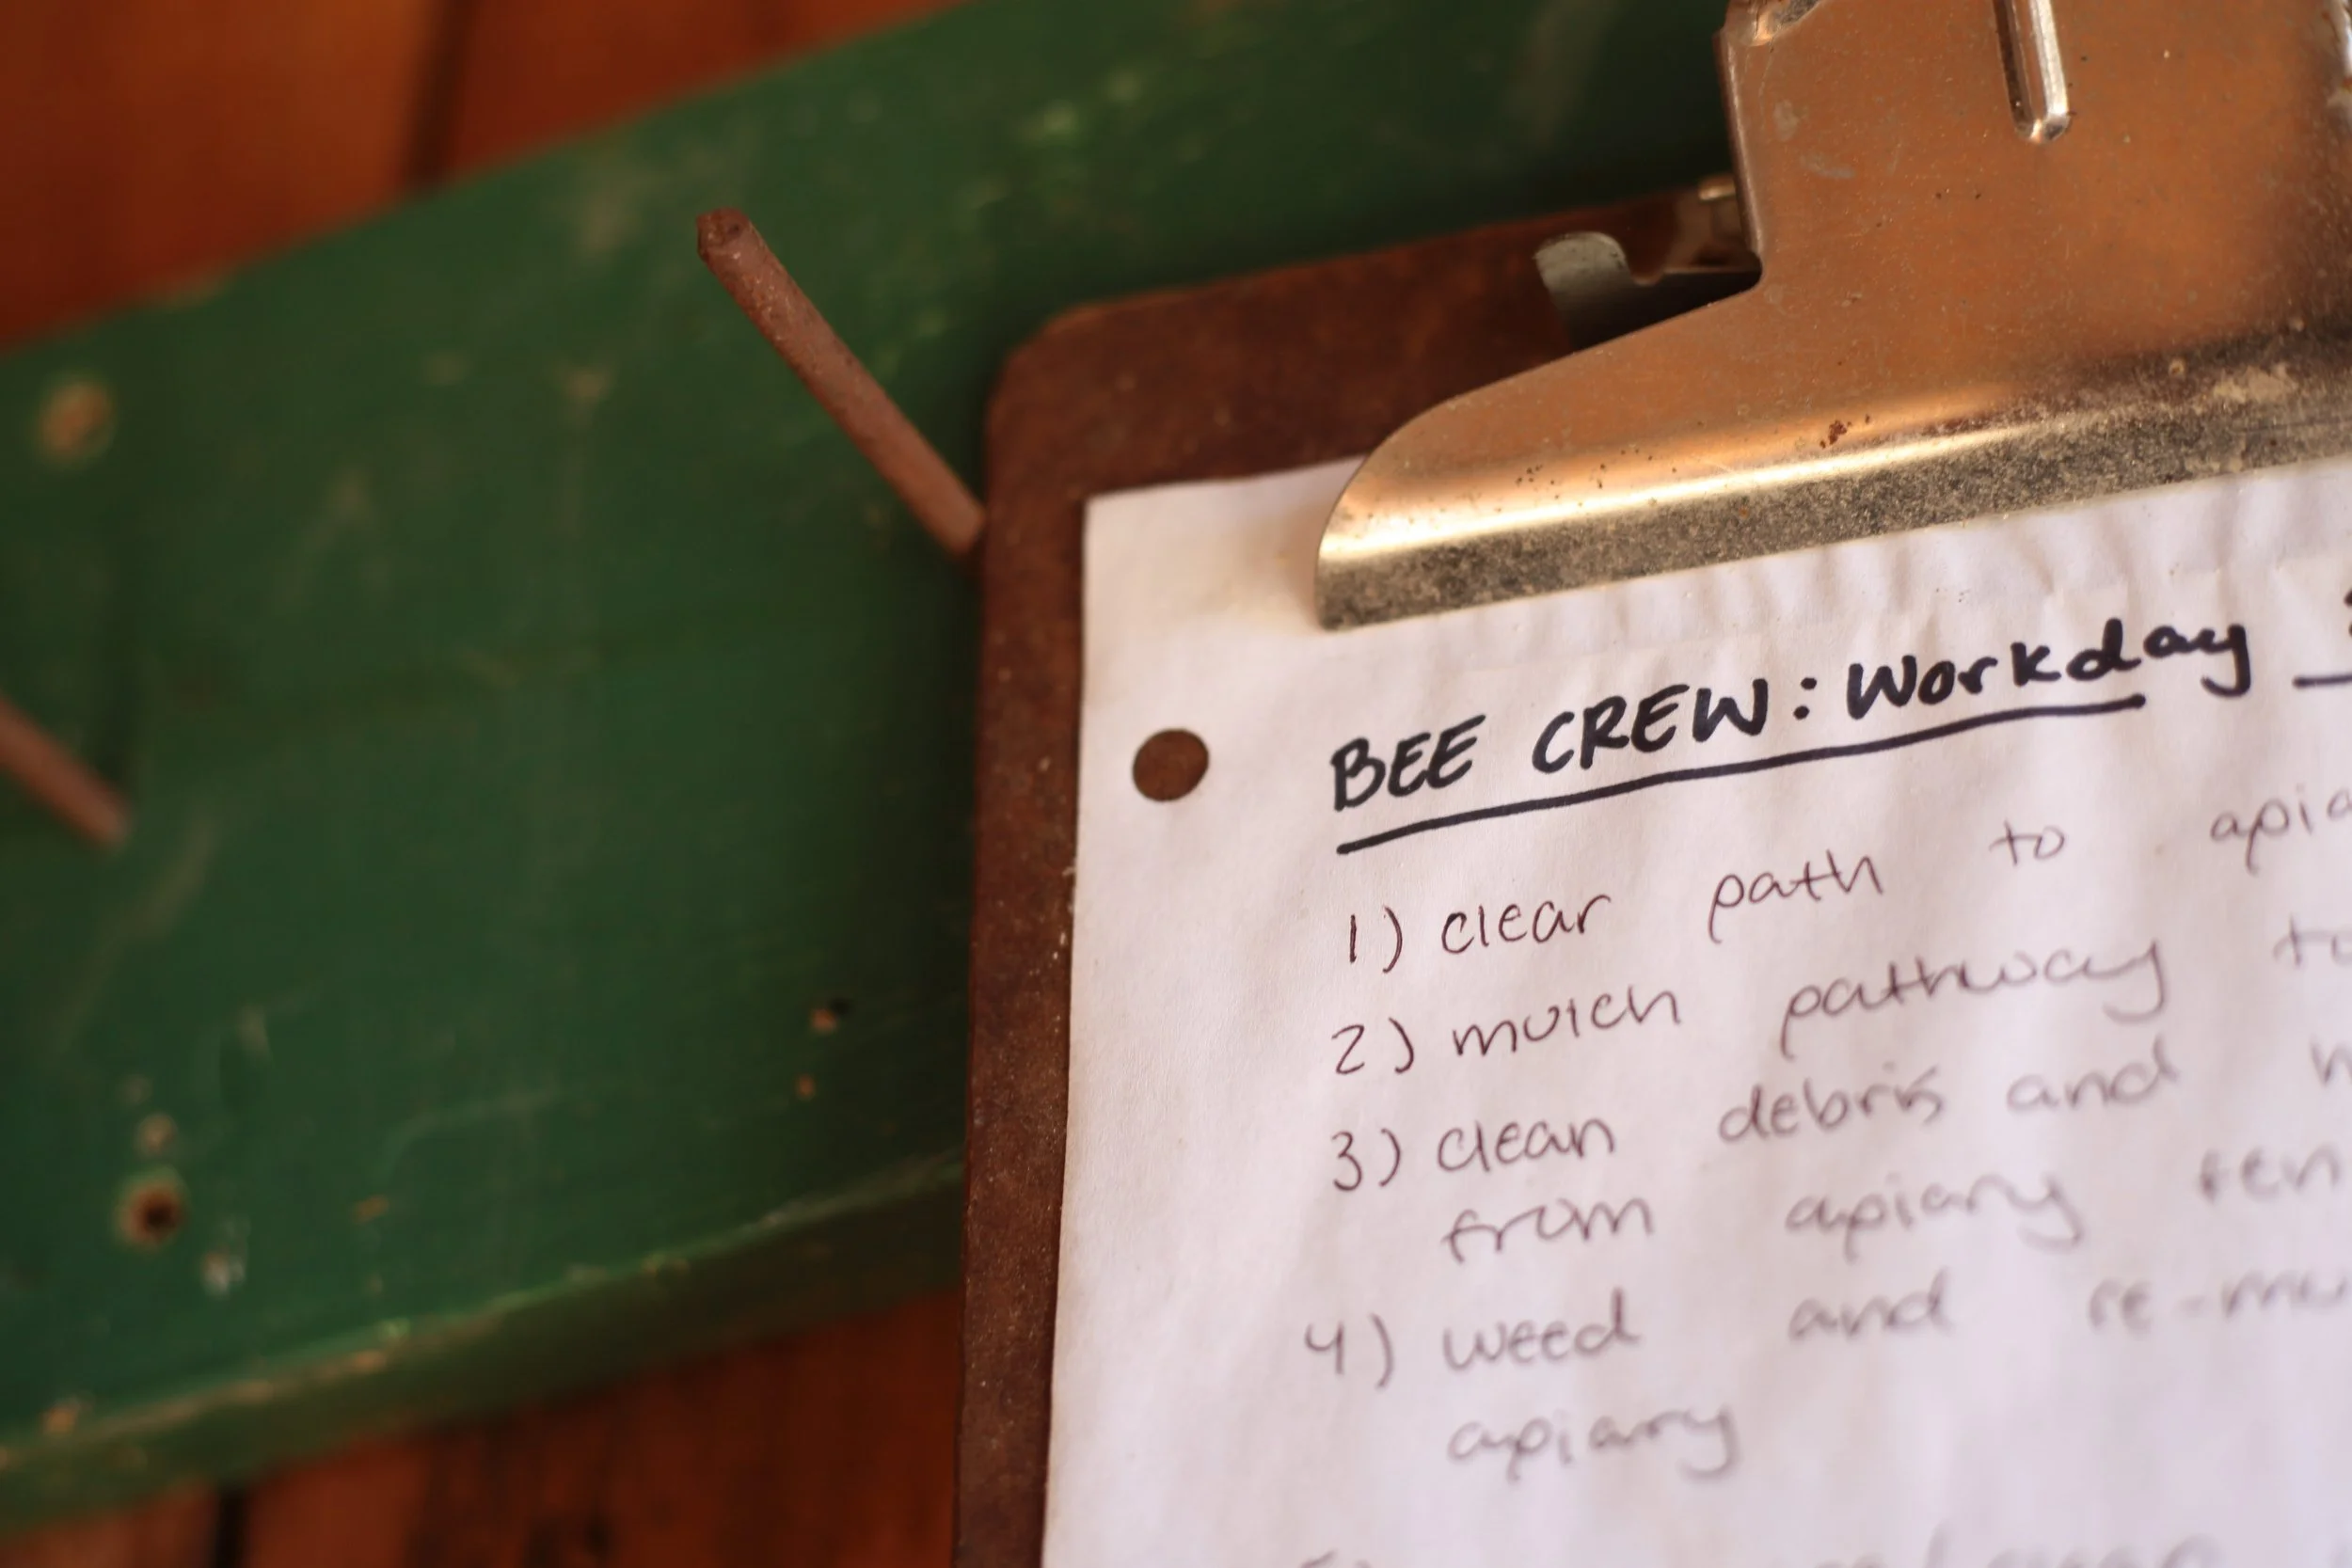 BEE CREW: Workday
1) clear path to apia
2) mulch pathway to
3) clean debris and
from apiary
4) weed and re-mu
apiary